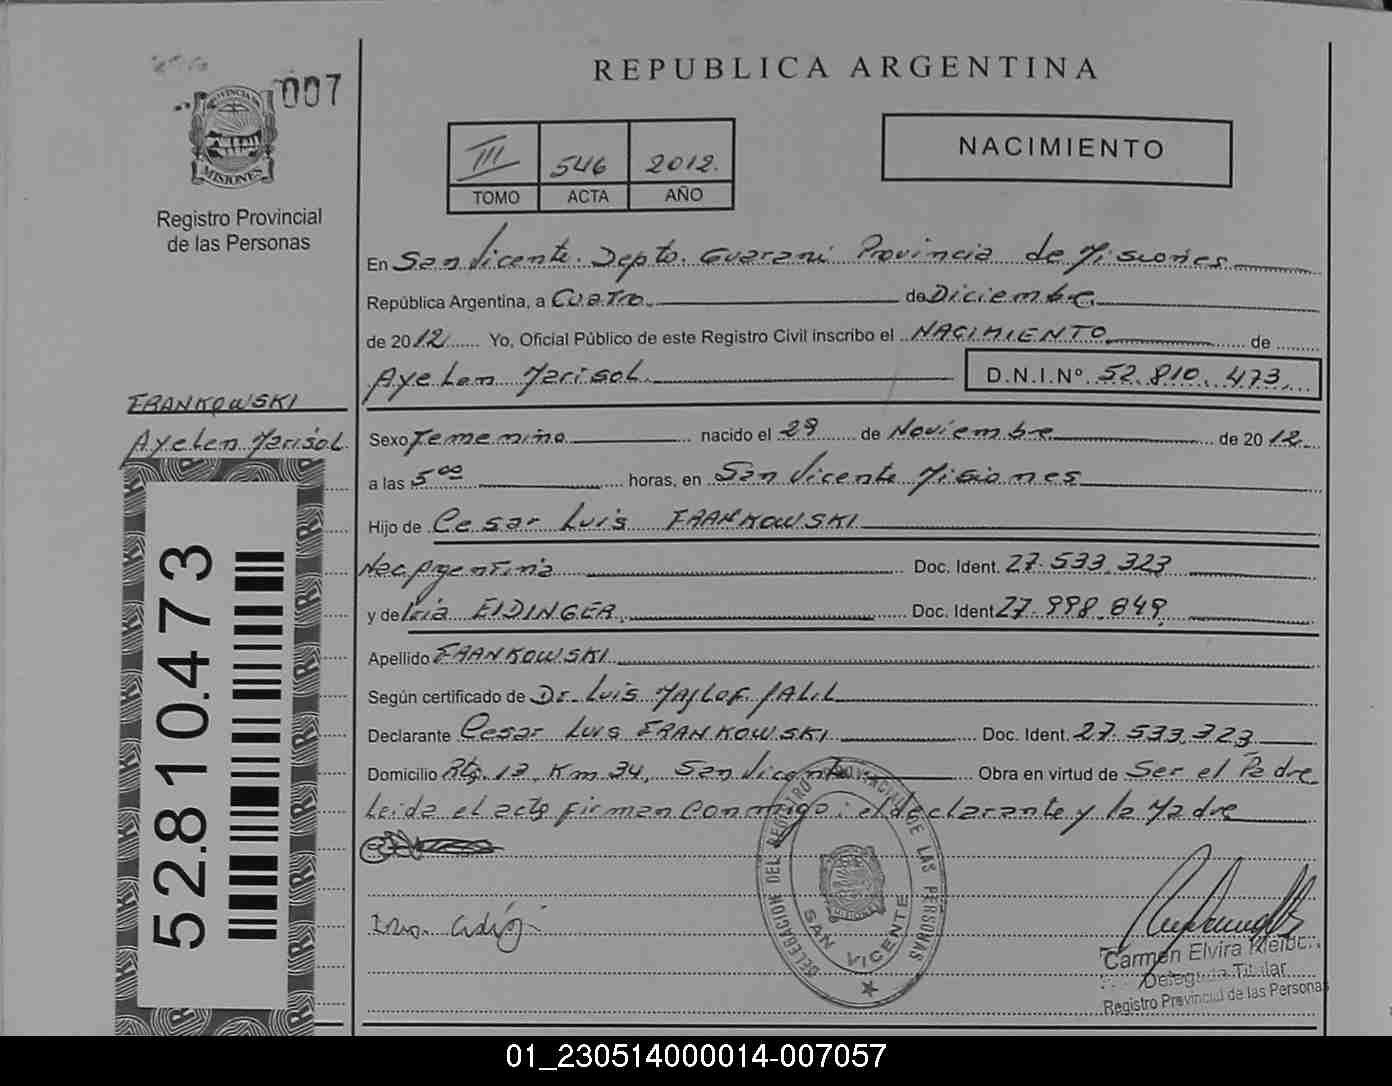 007
PROVINCIA DE
MISIONES
Registro Provincial
de las Personas
FRANKOWSKI
Ayelen Marisol
52.810.473
REPUBLICA ARGENTINA
III 546 2012.
TOMO ACTA AÑO
NACIMIENTO
En San Vicente. Depto. Guarani Provincia de Misiones
República Argentina, a Cuatro de Diciembre
de 2012 Yo, Oficial Público de este Registro Civil inscribo el NACIMIENTO de
Ayelen Marisol D.N.I.Nº 52.810.473
Sexo Femenino nacido el 29 de Noviembre de 2012
a las 5⁰⁰ horas, en San Vicente Misiones
Hijo de Cesar Luis FRANKOWSKI
Nac Argentina Doc. Ident. 27.533.323
y de EIDINGER Doc. Ident 27.998.849
Apellido FRANKOWSKI
Según certificado de Dr. Luis JALIL
Declarante Cesar Luis FRANKOWSKI Doc. Ident. 27.533.323
Domicilio Km 34, San Vicente Obra en virtud de Ser el Padre
Leida el acta firman conmigo: el declarante y la Madre
DELEGACION DEL REGISTRO PROVINCIAL DE LAS PERSONAS
SAN VICENTE
Carmen Elvira
Delegada Titular
Registro Provincial de las Personas
01_230514000014-007057